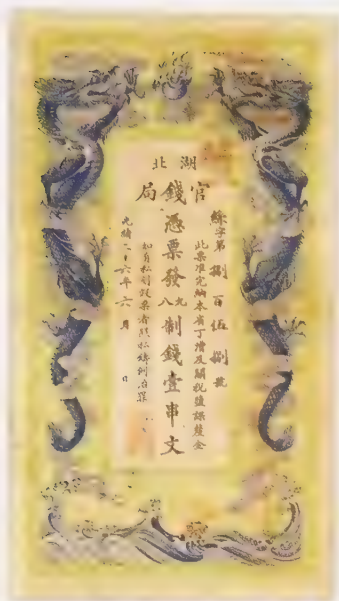 湖北
官錢局
字第捌百伍捌號
此票准完納本省丁漕及關稅鹽課釐金
憑票發九八制錢壹串文
如有私刻假票者照私鑄例治罪
光緒二十六年六月 日